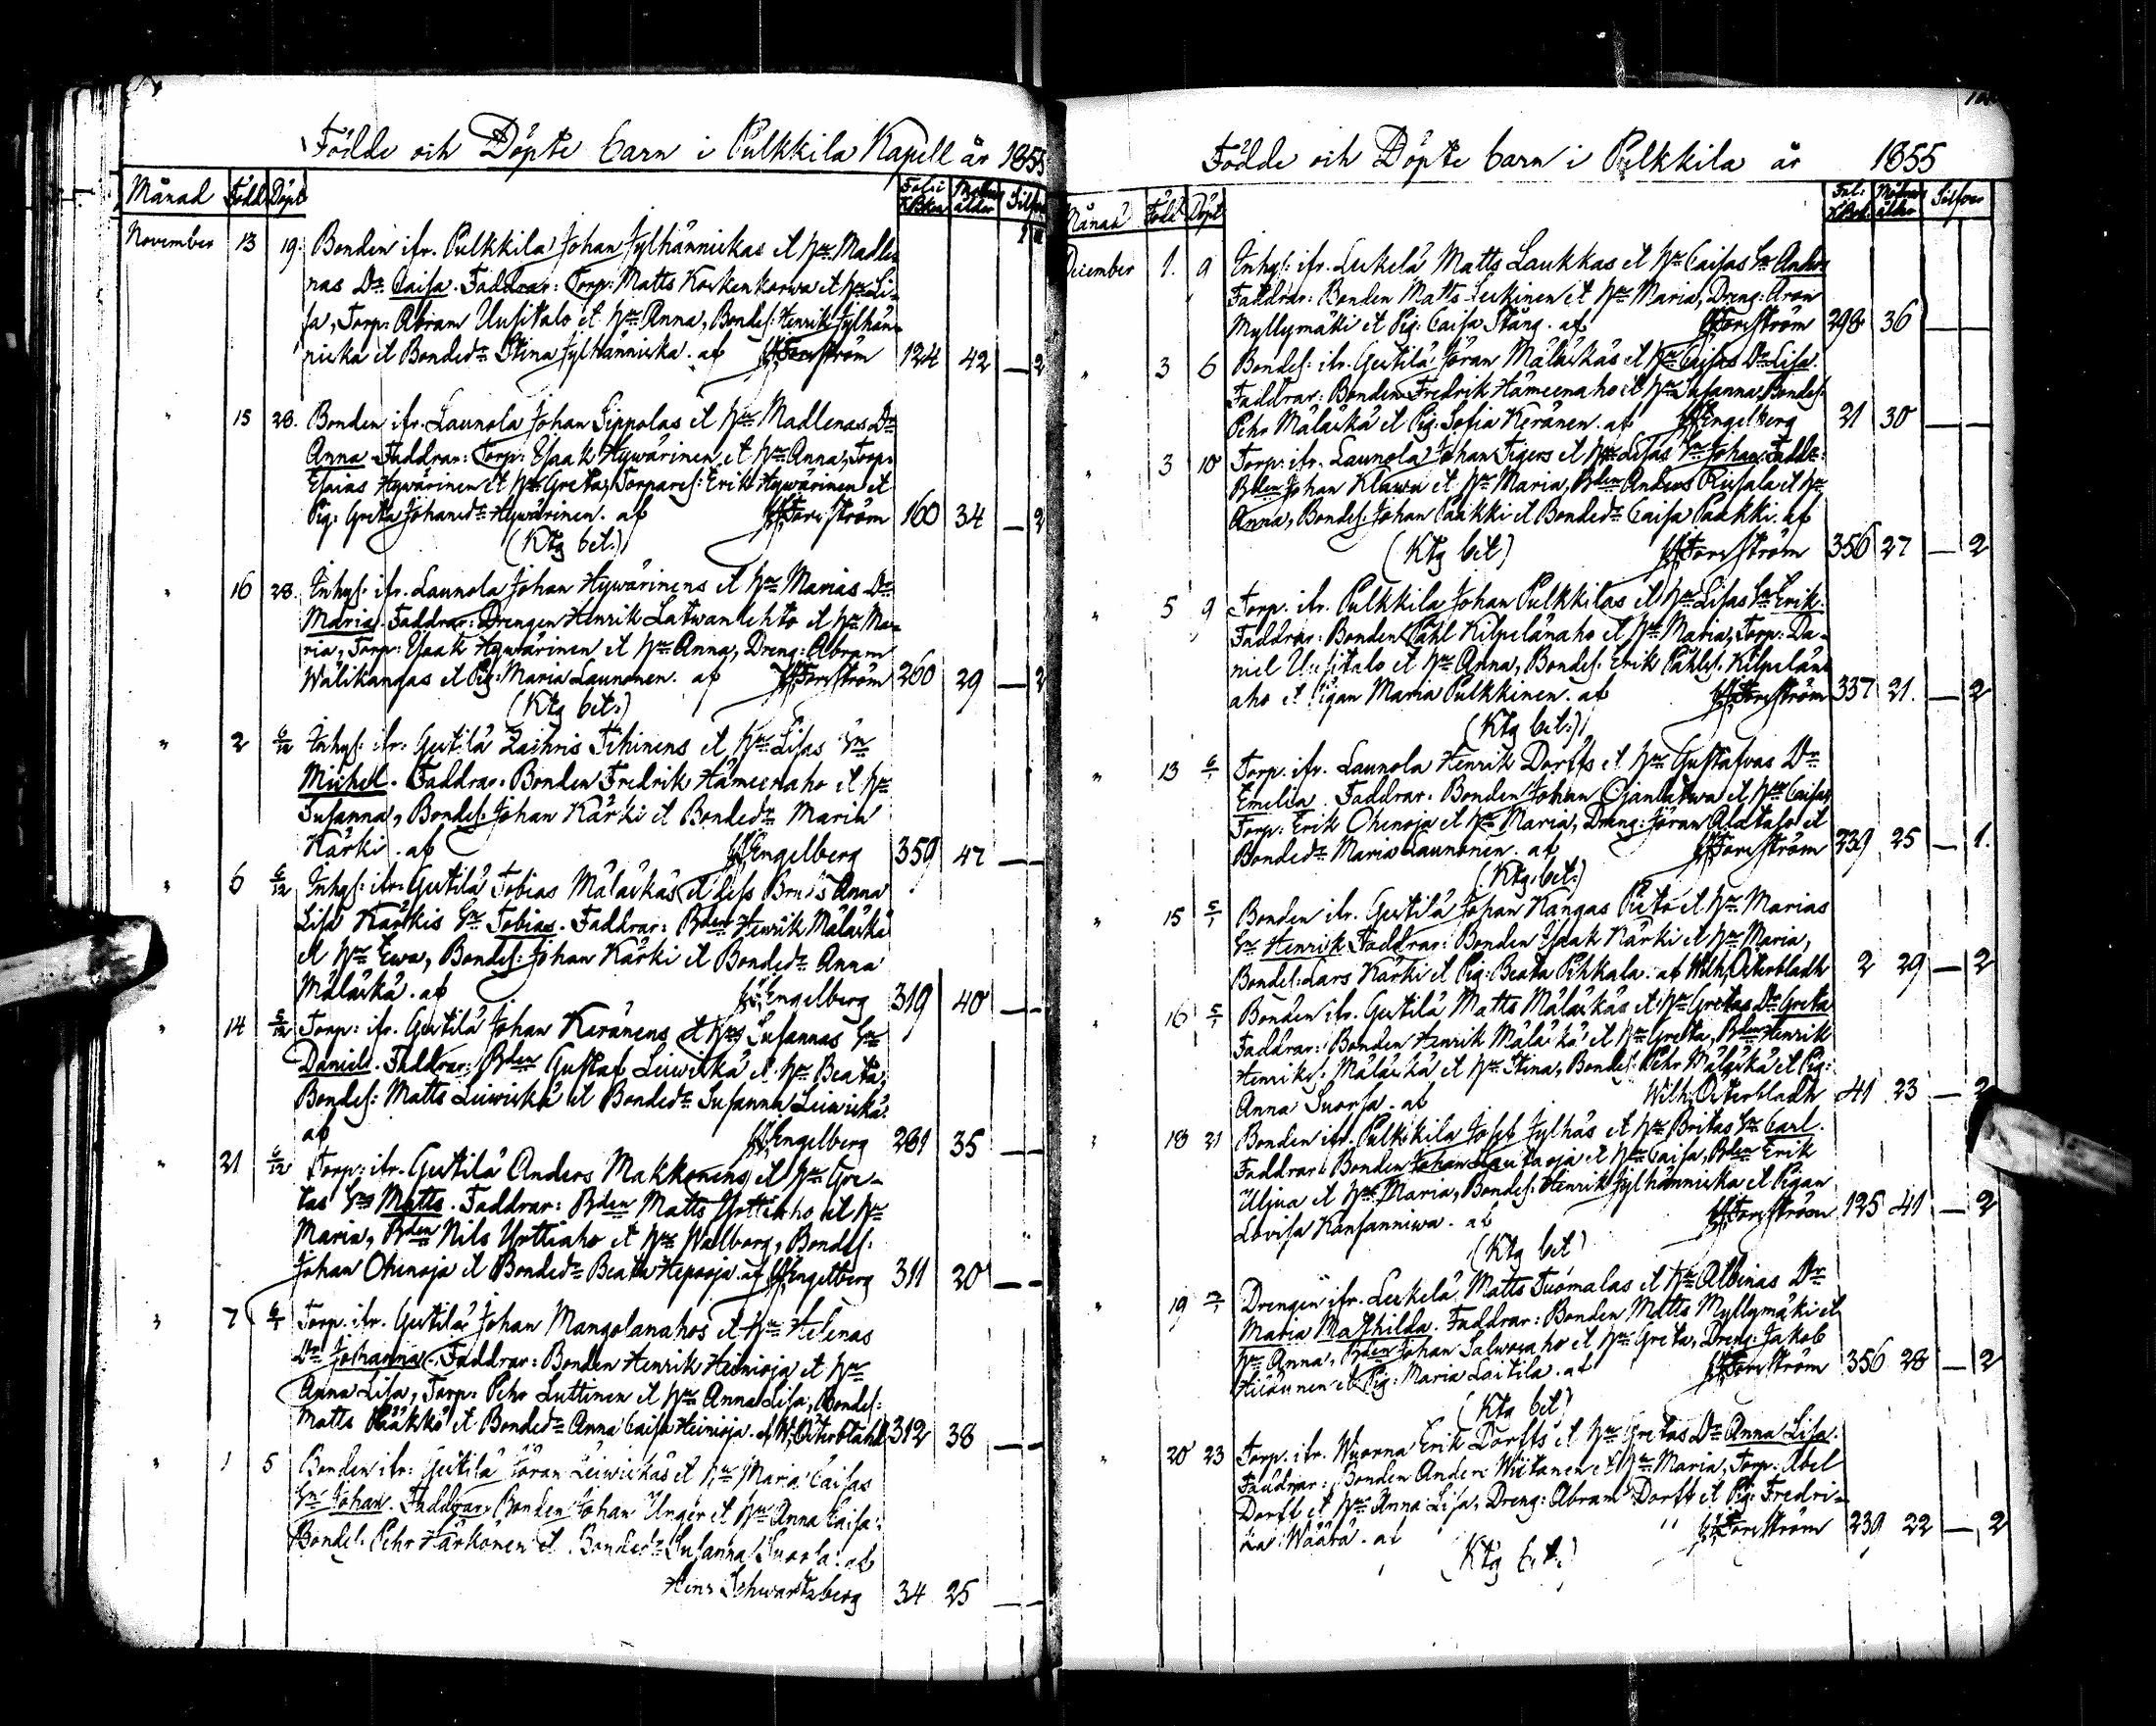 Födde och Döpte barn i Pulkkila Kapell år 1855
Månad Född Döpt Fol: i KBken Modrens ålder Silfver
November 13 19. Bonden ifr. Pulkkila Johan Jylhänniskas et hu Madle-
nas Dr Caisa. Faddrar: Torp: Matts Korkenkorwa et hu Li-
sa, Torp: Abram Uusitalo et hu Anna, Bondes: Henrik Jylhän-
niska et Bondedr Stina Jylhänniska. af Forsström 124 42 — 2
" 15 28. Bonden ifr. Launola Johan Sippolas et hu Madlenas Dr
Anna. Faddrar: Torp: Isaak Hywärinen et hu Anna, Torp:
Esaias Hywärinen et hu Greta, Torpares: Erik Hywärinen et
Pig: Greta Johansdr Hywärinen. af Forsström 160 34 — 2
(Ktg bet.)
" 16 28. Inhys: ifr. Launola Johan Hywärinens et hu Marias Dr
Maria. Faddrar: Drengen Henrik Latwanlehto et hu Ma-
ria, Torp: Isaak Hywärinen et hu Anna, Dreng: Abram
Wälikangas et Pig: Maria Launonen. af Forsström 260 29 — 2
(Ktg bet.)
" 2 6/12 Inhys: ifr: Gertilä Zachris Tihinens et hu Lisas Sn
Michel. Faddrar: Bonden Fredrik Hämeenaho et hu
Susanna, Bondes: Johan Kärki et Bondedr Maria
Kärki. af Engelberg 359 47 — —
" 6 6/12 Inhys: ifr: Gertilä Tobias Mäläskäs et dess Bruds Anna
Lisa Kärkis Sn Tobias. Faddrar: Bden Henrik Mäläskä
et hu Ewa, Bondes: Johan Kärki et Bondedr Anna
Mäläskä. af Engelberg 319 40 — —
" 14 5/12 Torp: ifr. Gertilä Johan Karänens et hus Susannas Sn
Daniel. Faddrar: Bden Gustaf Leiwiskä et hu Beata,
Bondes: Matts Leiwiskä et Bondedr Susanna Leiwiskä
af Engelberg 281 35 — —
" 21 6/12 Torp: ifr. Gertilä Anders Makkonens et hu Gre-
tas Sn Matts. Faddrar: Bden Matts Yrttiaho et hu
Maria, Bden Nils Yrttiaho et hu Walborg, Bondes:
Johan Ohenoja et Bondedr Beata Hepooja. af Engelberg 311 20 — —
" 7 6/1 Torp. ifr. Gertilä Johan Mangolanahos et hu Helenas
Dr Johanna. Faddrar: Bonden Henrik Heinioja et hu
Anna Lisa, Torp: Pehr Luttinen et hu Anna Lisa, Bondes:
Matts Rääkkö et Bondedr Anna Caisa Heinioja. af W. Österbladh 312 38 — —
" 1 5 Bonden ifr: Gertilä Jöran Leiwiskäs et hu Maria Caisas
Sn Johan. Faddrar: Bonden Johan Unger et hu Anna Caisa:
Bondes: Pehr Härkönen et Bondedr Susanna Suorsa: af
Henr Schwartzberg 34 25 — —
Födde och Döpte barn i Pulkkila år 1855
Månad Född Döpt Fol: KBok Modrens ålder Silfver
December 1. 9 Inhys: ifr. Leskelä Matts Laukkas et hu Caisas Sn Anders
Faddrar: Bonden Matts Leskinen et hu Maria, Dreng: Aron
Myllymäki et Pig: Caisa Stång. af Forsström 298 36 — —
" 3 6 Bondes: ifr. Gertilä Jöran Mäläskäs et hu Caisas Dr Lisa.
Faddrar: Bonden Fredrik Hämeenaho et hu Susanna, Bondes:
Pehr Mäläskä et Pig: Sofia Keränen. af Engelberg 21 30 — —
" 3 10 Torp: ifr. Launola Johan Tigers et hu Lisas Sn Johan. Faddr:
Bden Johan Klawu et hu Maria, Bden Anders Riusala et hu
Anna, Bondes: Johan Paakki et Bondedr Caisa Paakki. af
(Ktg bet) Forsström 356 27 — 2
" 5 9 Torp. ifr. Pulkkila Johan Pulkkilas et hu Lisas Sn Erik.
Faddrar: Bonden Påhl Kilpelänaho et hu Maria, Torp: Da-
niel Uusitalo et hu Anna, Bondes: Erik Påhls: Kilpelän-
aho et Pigan Maria Pulkkinen. af Forsström 337 21. — 2
(Ktg bet.)
" 13 6/1 Torp. ifr. Launola Henrik Dorffs et hu Gustafwas Dr
Emelia. Faddrar: Bonden Johan Ojanlatwa et hu Caisa,
Torp: Erik Ohenoja et hu Maria, Dreng: Jöran Alatalo et
Bondedr Maria Launonen. af Forsström 239 25 — 1.
(Ktg. bet.)
" 15 5/1 Bonden ifr. Gertilä Johan Kangas Pieto et hu Marias
Sn Henrik. Faddrar: Bonden Isaak Kärki et hu Maria,
Bondes: Lars Kärki et Pig: Beata Pihkala. af Wilh. Österbladh 2 29 — 2
" 16 5/1 Bonden ifr. Gertilä Matts Mäläskäs et hu Gretas Dr Greta
Faddrar: Bonden Henrik Mäläskä et hu Greta, Bden Henrik
Henriks: Mäläskä et hu Stina, Bondes: Pehr Mäläskä et Pig:
Anna Suorsa. af Wilh. Österbladh 41 23 — 2
" 18 21 Bonden ifr. Pulkkila Josef Jylhäs et hu Britas Sn Carl.
Faddrar: Bonden Johan Lautaoja et hu Caisa, Bden Erik
Uljua et hu Maria, Bondes: Henrik Jylhänniska et Pigan
Lovisa Kansanniwa. af Forsström 125 41 — 2
(Ktg bet)
" 19 7/1 Drengen ifr. Leskelä Matts Tuomalas et hu Albinas Dr
Maria Mathilda. Faddrar: Bonden Matts Myllymäki et
hu Anna, Bden Johan Salwoaho et hu Greta, Dreng: Jakob
et Pig: Maria Laitila. af Forsström 356 28 — 2
(Ktg bet)
" 20 23 Torp. ifr. Wuorna Erik Dorffs et hu Gretas Dr Anna Lisa.
Faddrar: Bonden Anders Wiitanen et hu Maria, Torp: Abel
Dorff et hu Anna Lisa, Dreng: Abram Dorff et Pig: Fredri-
ka Wäärä. af Forsström 239 22 — 2
(Ktg bet.)